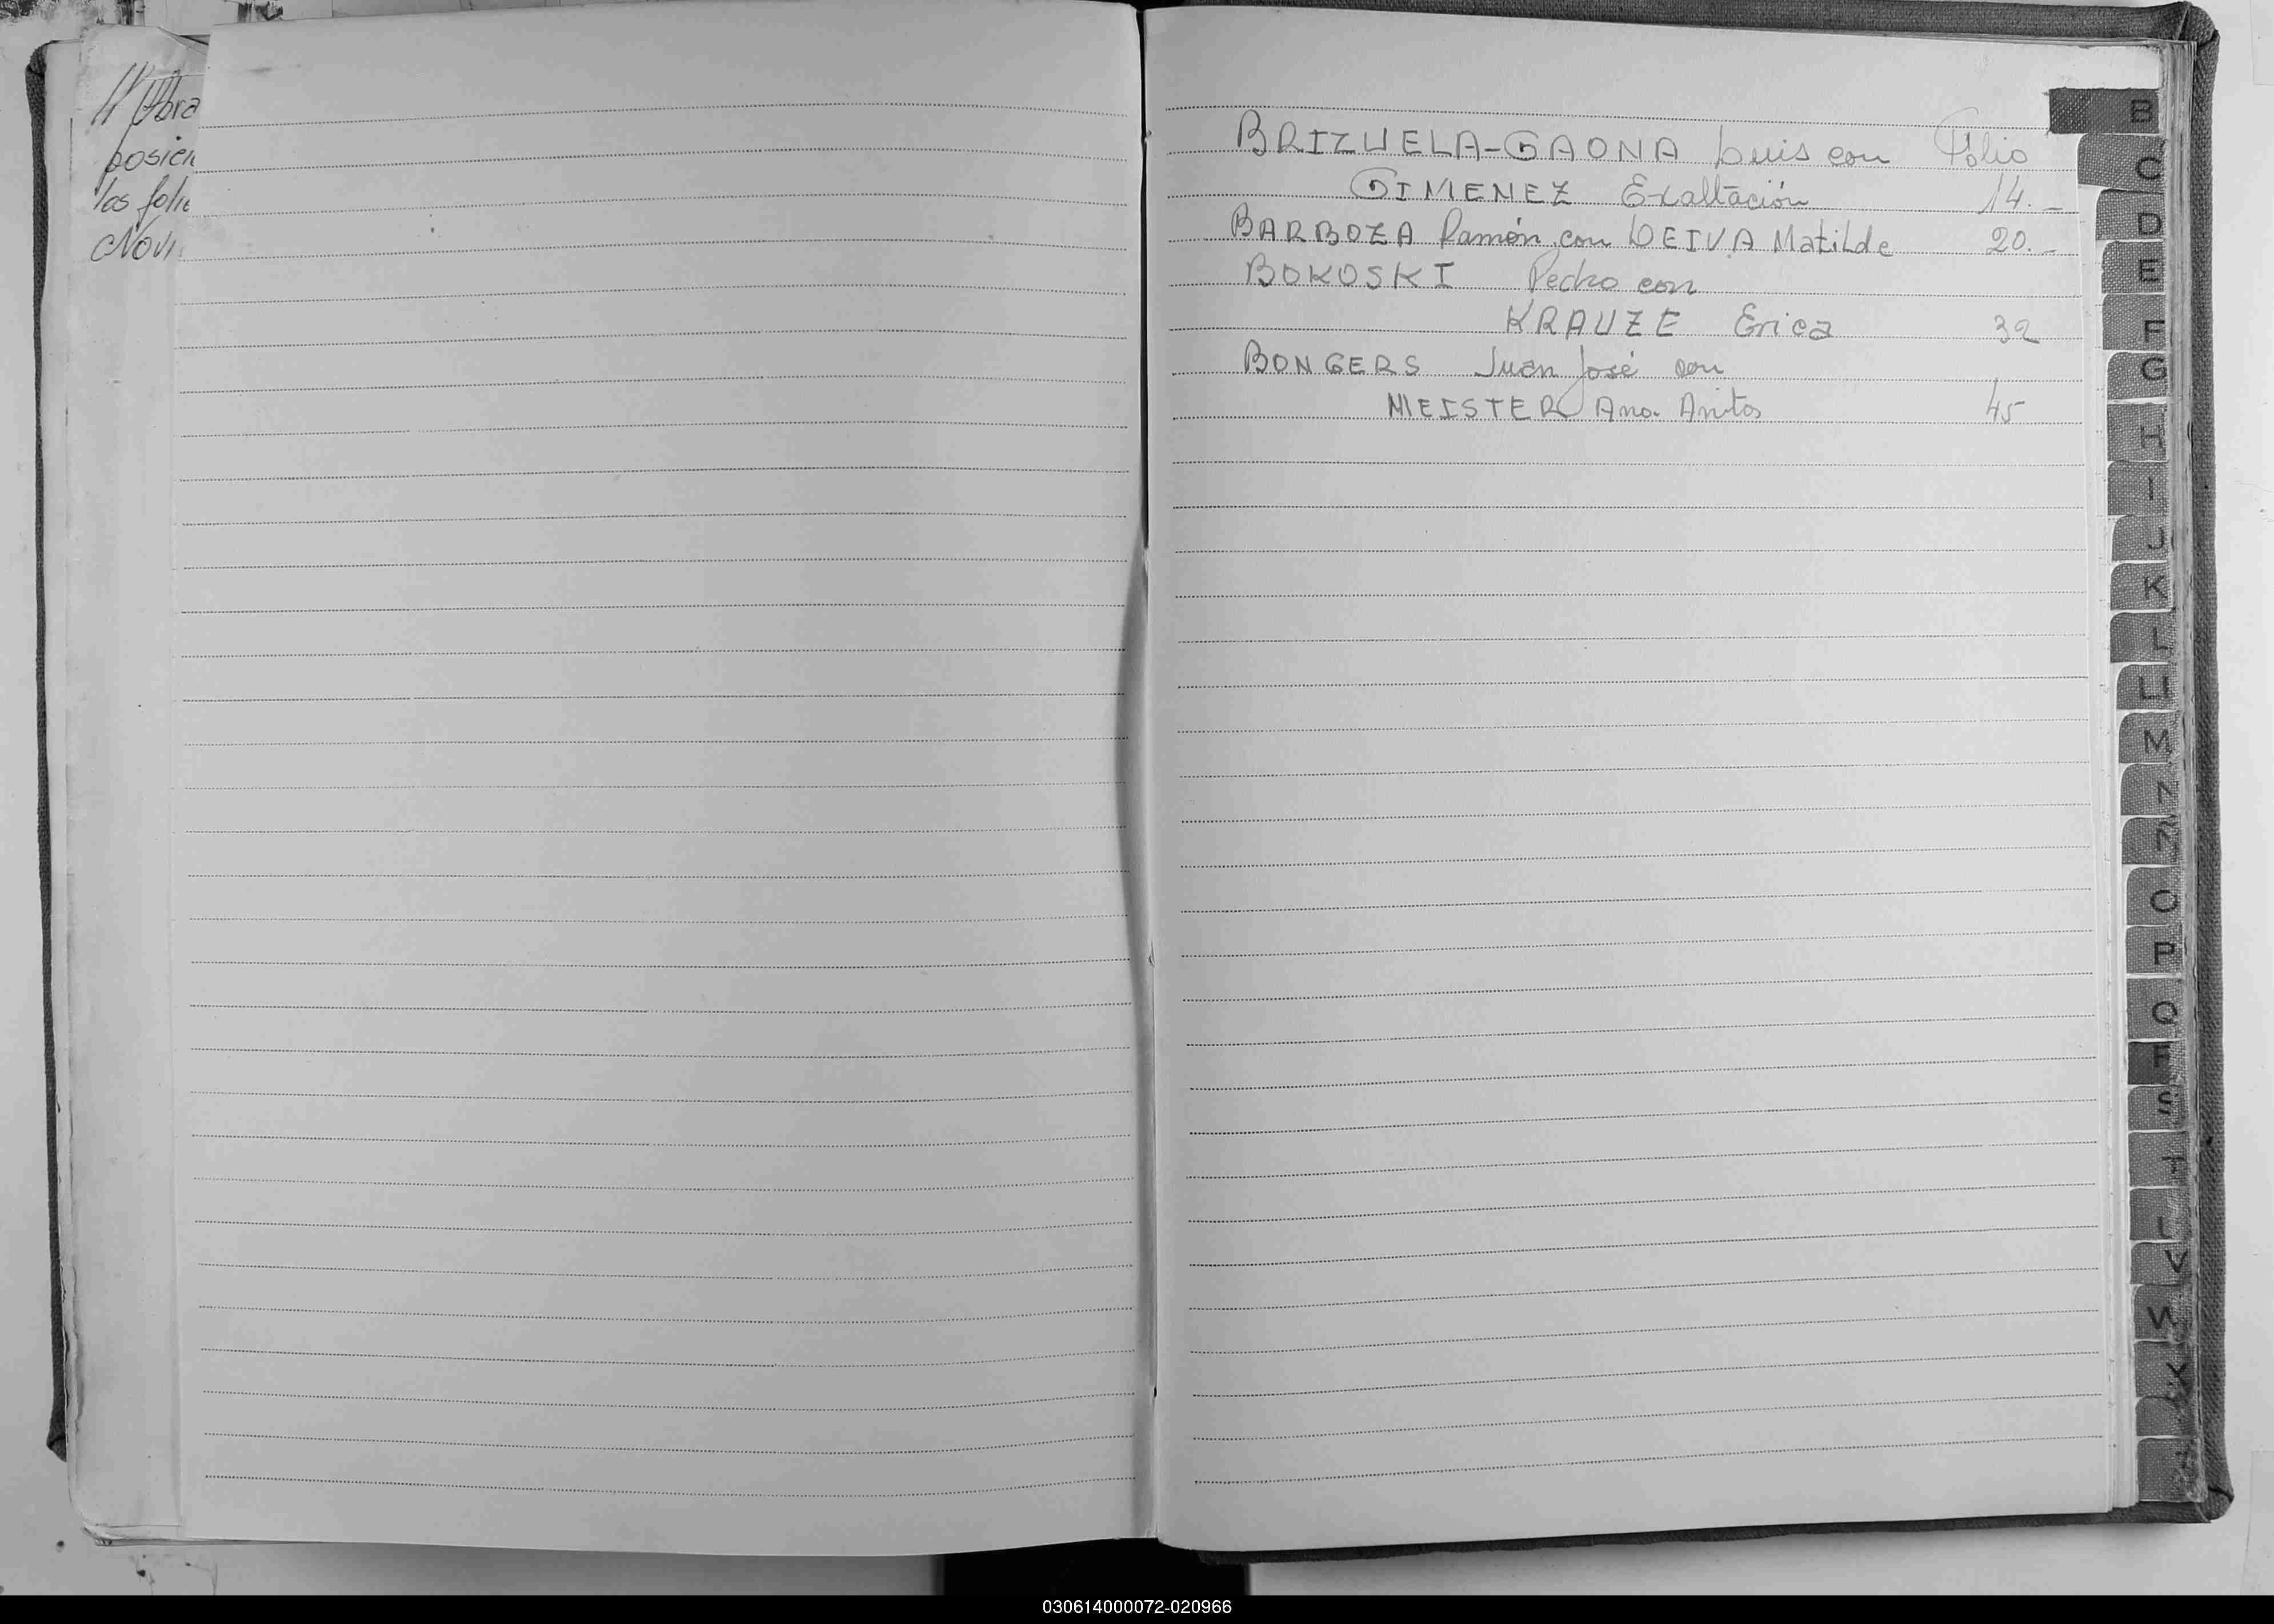 // Obra
posici
las foli
Novi
BRIZUELA-GAONA Luis con Folio
GIMENEZ Exaltación 14.-
BARBOZA Ramón con LEIVA Matilde 20.-
BOKOSKI Pedro con
KRAUZE Erica 32
BONGERS Juan José con
MEISTER Ana Anita 45
B
C
D
E
F
G
H
I
J
K
L
LL
M
N
Ñ
O
P
Q
R
S
T
V
W
X
030614000072-020966